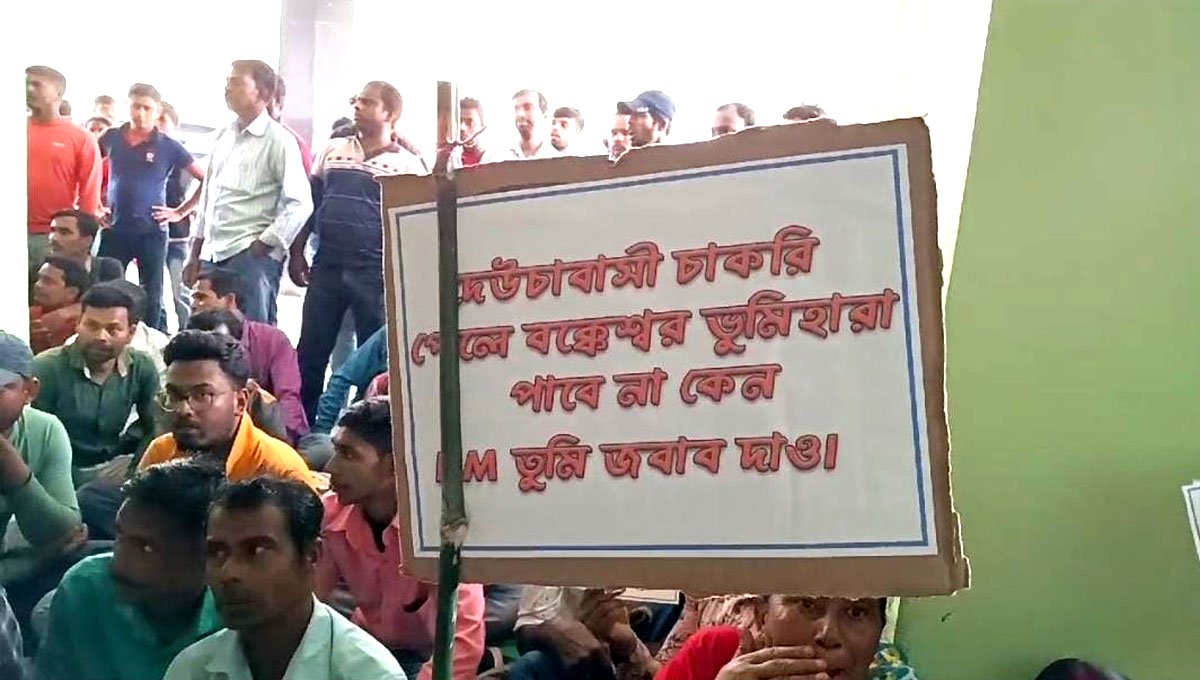 দেউচাবাসী চাকরি
পেলে বক্কেশ্বর ভুমিহারা
পাবে না কেন
তুমি জবাব দাও।